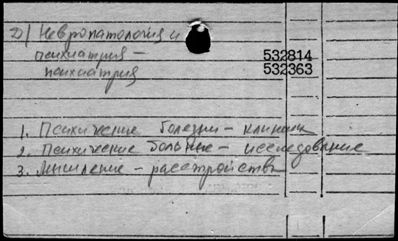 2) Невропатология и
психиатрия - 532814
психиатрия 532363
1. Психические болезни - клиника
2. Психические больные - исследование
3. Мышление - расстройства